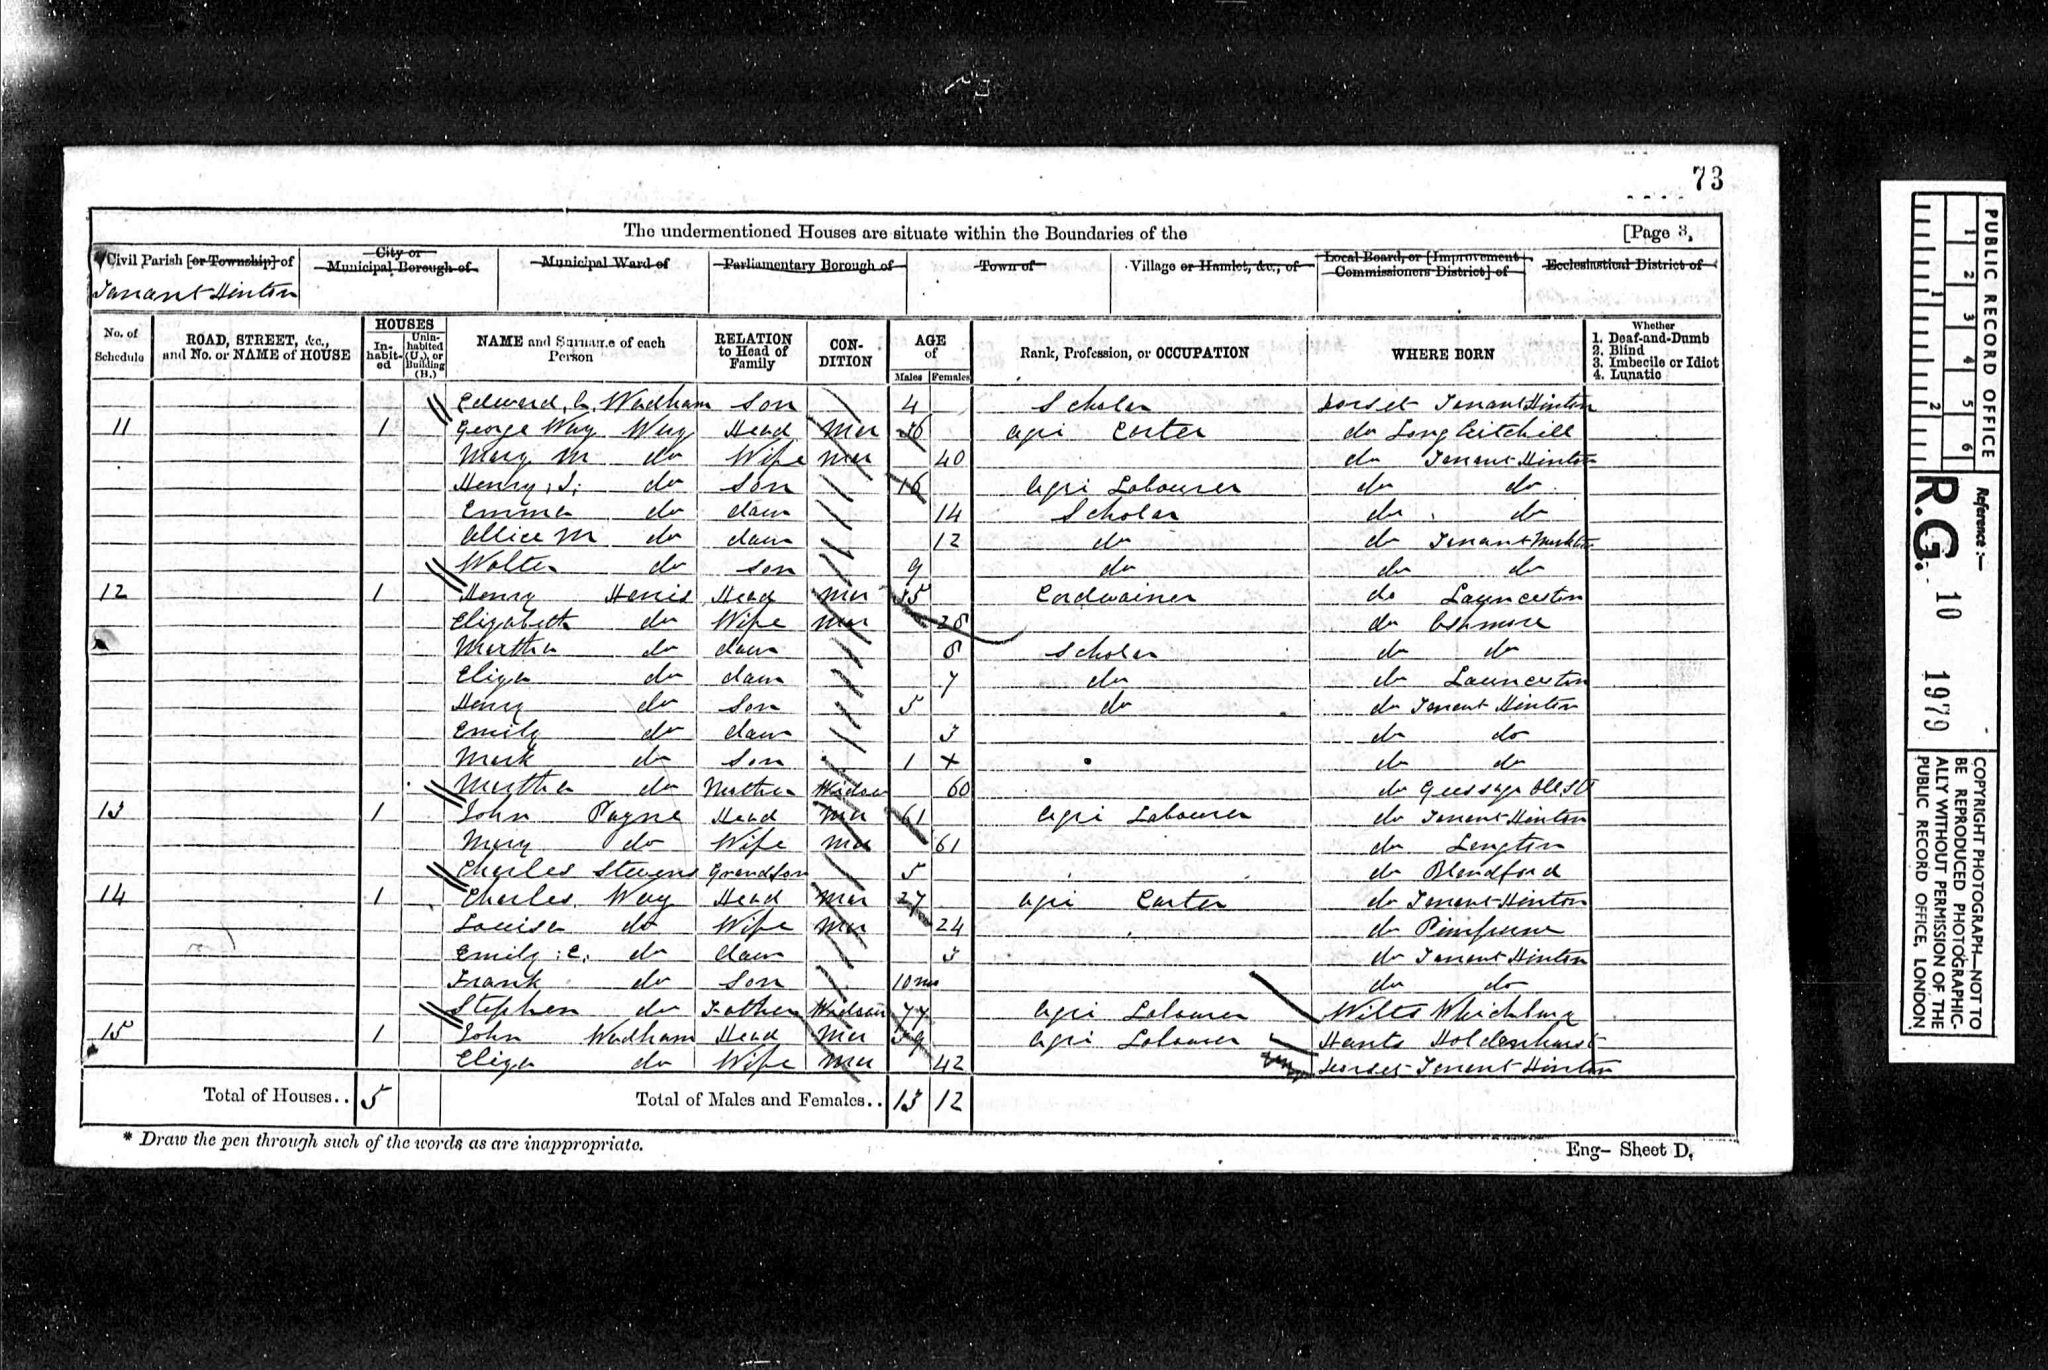 73
The undermentioned Houses are situate within the Boundaries of the [Page 3.
Civil Parish [or Township] of City or Municipal Borough of Municipal Ward of Parliamentary Borough of Town of Village or Hamlet, &c., of Local Board, or [Improvement Commissioners District] of Ecclesiastical District of
Tarrant Hinton
No. of Schedule ROAD, STREET, &c., and No. or NAME of HOUSE HOUSES In-habit-ed Unin-habited (U.), or Building (B.) NAME and Surname of each Person RELATION to Head of Family CON-DITION AGE of Males Females Rank, Profession, or OCCUPATION WHERE BORN Whether 1. Deaf-and-Dumb 2. Blind 3. Imbecile or Idiot 4. Lunatic
Edward. C. Wadham Son 4 Scholar Dorset Tarrant Hinton
11 1 George Way Way Head Mar 36 Agri Carter do Long Critchill
Mary M do Wife Mar 40 do Tarrant Hinton
Henry. S. do Son 16 Agri Labourer do do
Emma do daur 14 Scholar do do
Allice M do daur 12 do do Tarrant
Walter do son 9 do do do
12 1 Henry Harris Head Mar 35 Cordwainer do Launceston
Elizabeth do Wife Mar 28 do Ashmore
Martha do daur 8 Scholar do do
Eliza do daur 7 do do Launceston
Henry do Son 5 do do Tarrant Hinton
Emily do daur 3 do do
Mark do Son 1 + do do
Martha do Mother Widow 60 do Gussage
13 1 John Payne Head Mar 61 Agri Labourer do Tarrant Hinton
Mary do Wife Mar 61 do Langton
Charles Stevens Grandson 5 do Blandford
14 1 Charles. Way Head Mar 27 Agri Carter do Tarrant Hinton
Louisa do Wife Mar 24 do Pimperne
Emily. E. do daur 3 do Tarrant Hinton
Frank do Son 10 mo do do
Stephen do Father 77 Agri Labourer Wilts Whichbury
15 1 John Wadham Head Mar 39 Agri Labourer Hants Holdenhurst
Eliza do Wife Mar 42 Dorset Tarrant Hinton
Total of Houses.. 5 Total of Males and Females.. 13 12
* Draw the pen through such of the words as are inappropriate. Eng- Sheet D.
PUBLIC RECORD OFFICE
1 2 3 4 5 6
1 2
Reference :-
R.G. 10 1979
COPYRIGHT PHOTOGRAPH—NOT TO
BE REPRODUCED PHOTOGRAPHIC-
ALLY WITHOUT PERMISSION OF THE
PUBLIC RECORD OFFICE, LONDON